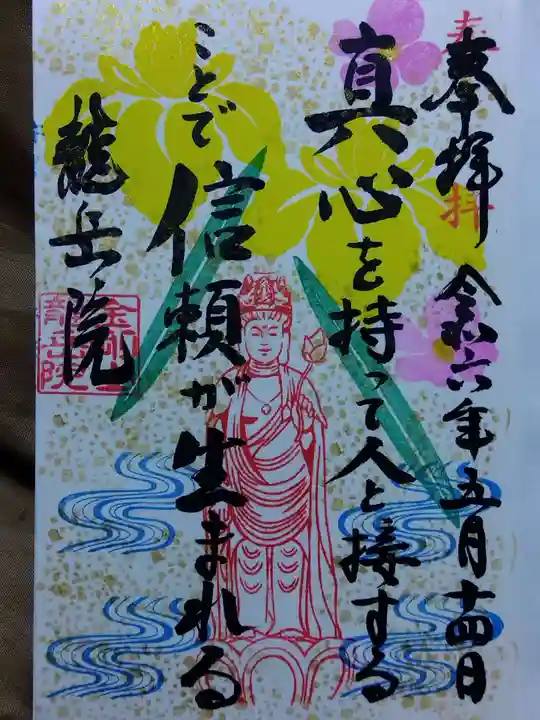 奉拝 令和六年五月十四日
奉拝
真心を持って人と接する
ことで信頼が生まれる
龍岳院